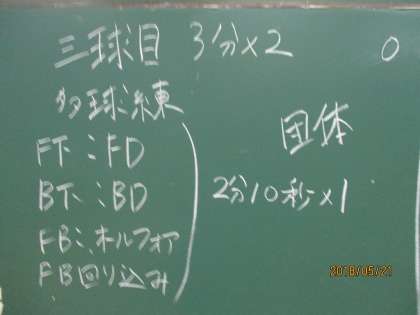 三球目 3分×2 0
多球練
FT:FD
BT:BD
FB:オールフォア
FB回り込み
団体
2分10秒×1
2018/05/21